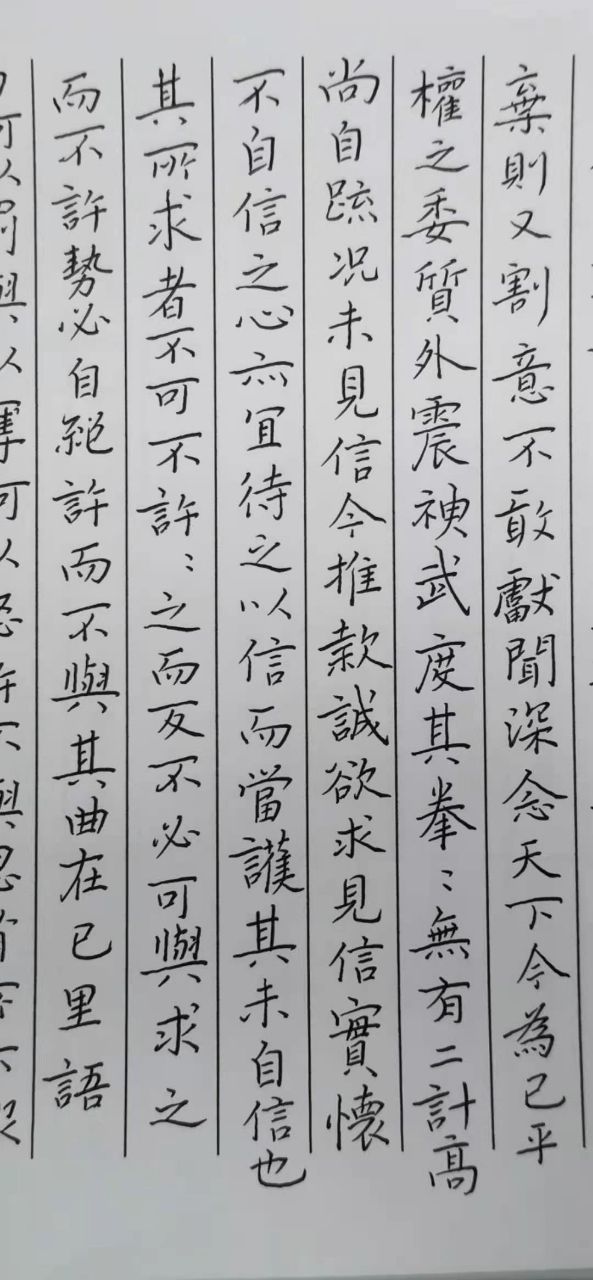 棄則又割意不敢獻聞深念天下今為已平
權之委質外震神武度其拳〻無有二計高
尚自疏况未見信今推款誠欲求見信實懷
不自信之心亦宜待之以信而當護其未自信也
其所求者不可不許〻之而反不必可與求之
而不許勢必自絕許而不與其曲在已里語